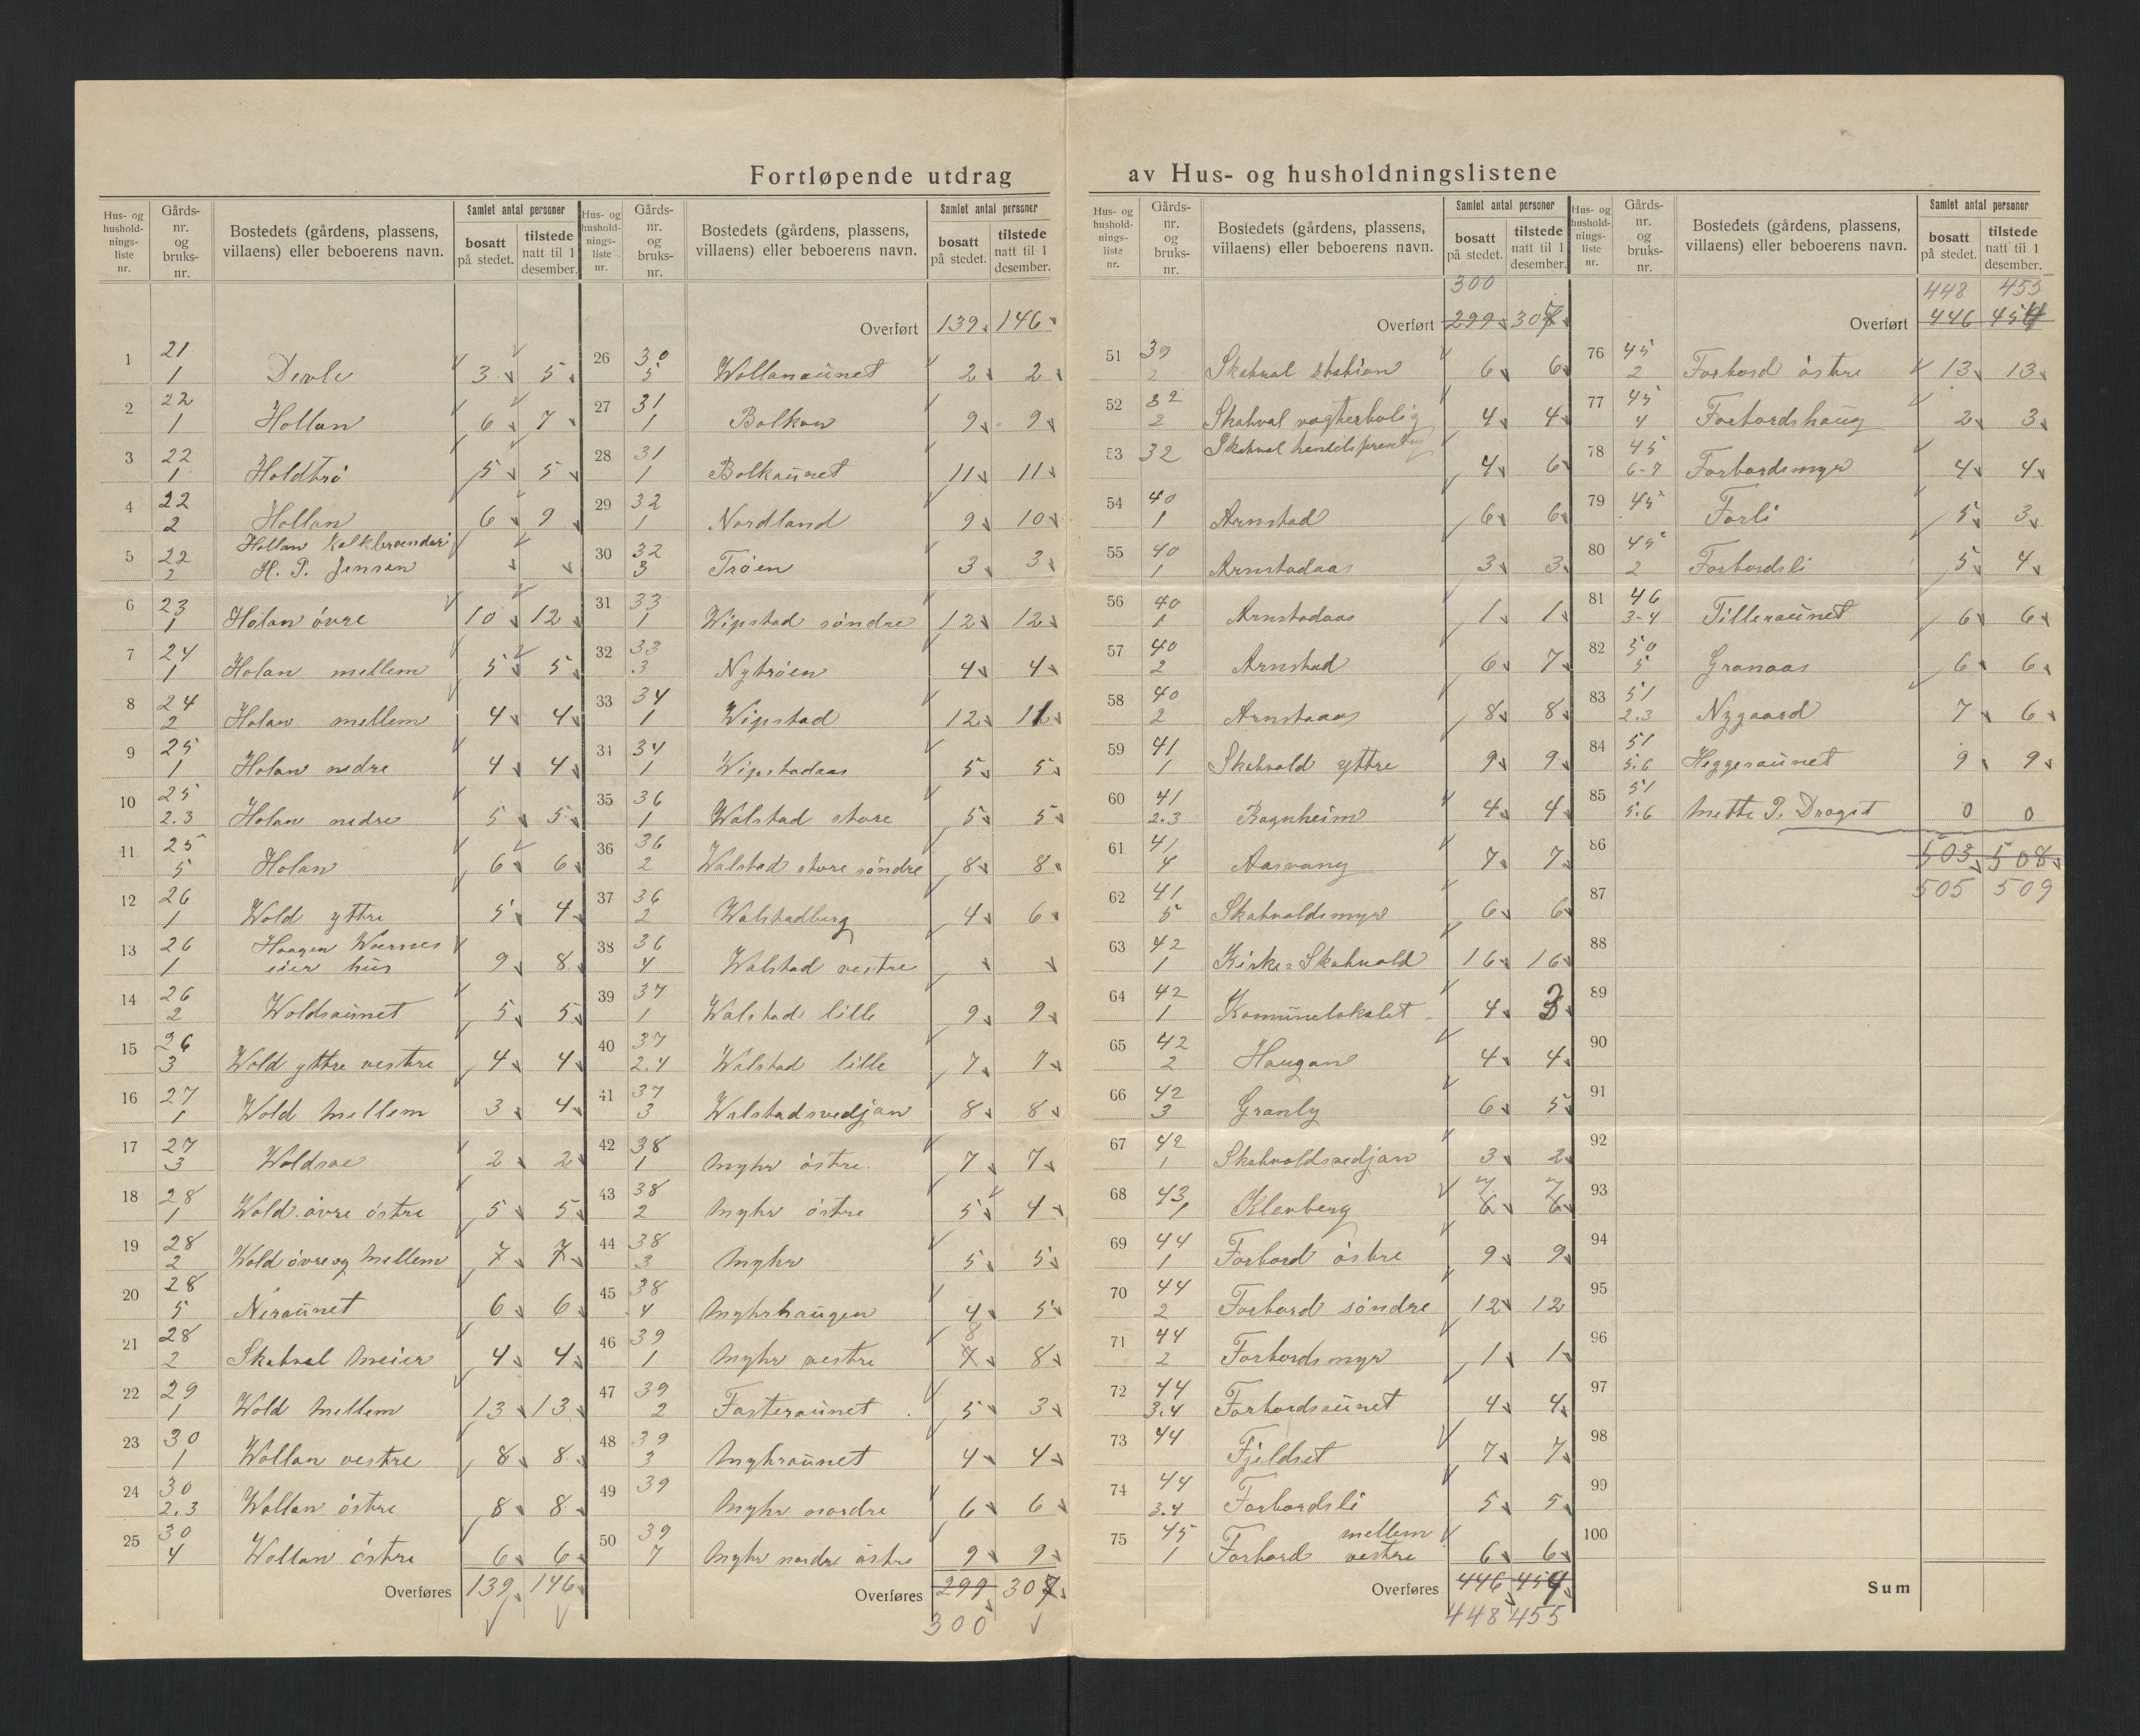 Fortløpende utdrag av Hus- og husholdningslistene
Hus- og hushold-nings-liste nr. | Gårds-nr. og bruks-nr. | Bostedets (gårdens, plassens, villaens) eller beboerens navn. | Samlet antal personer | bosatt på stedet. | tilstede natt til 1 desember.
1 21 1 Devle 3 5
2 22 1 Hollan 6 7
3 22 1 Holdtrö 5 5
4 22 2 Hollan 6 9
5 22 2 Hollan Kalkbrænderi
H. P. Jensen
6 23 1 Holan övre 10 12
7 24 1 Holan mellem 5 5
8 24 2 Holan mellem 4 4
9 25 1 Holan nedre 4 4
10 25 2.3 Holan nedre 5 5
11 25 5 Holan 6 6
12 26 1 Wold yttre 5 4
13 26 1 Haagen Wærnes
eier hus 9 8
14 26 2 Woldsaunet 5 5
15 26 3 Wold yttre vestre 4 4
16 27 1 Wold Mellem 3 4
17 27 3 Woldsve 2 2
18 28 1 Wold övre östre 5 5
19 28 2 Wold övre og Mellem 7 7
20 28 5 Neraunet 6 6
21 28 2 Skatval Meier 4 4
22 29 1 Wold Mellem 13 13
23 30 1 Wollan vestre 8 8
24 30 2.3 Wollan östre 8 8
25 30 4 Wollan östre 6 6
Overføres 139 146
Hus- og hushold-nings-liste nr. | Gårds-nr. og bruks-nr. | Bostedets (gårdens, plassens, villaens) eller beboerens navn. | Samlet antal personer | bosatt på stedet. | tilstede natt til 1 desember.
Overført 139 146
26 30 5 Wollanaunet 2 2
27 31 1 Bolkan 9 9
28 31 1 Bolkaunet 11 11
29 32 1 Nordland 9 10
30 32 3 Tröen 3 3
31 33 1 Wipstad söndre 12 12
32 33 3 Nytröen 4 4
33 34 1 Wipstad 12 11
34 34 1 Wipstadaas 5 5
35 36 1 Walstad store 5 5
36 36 2 Walstad store söndre 8 8
37 36 2 Walstadberg 4 6
38 36 4 Walstad vestre
39 37 1 Walstad lille 9 9
40 37 2.4 Walstad lille 7 7
41 37 3 Walstadsvedjan 8 8
42 38 1 Myhr östre 7 7
43 38 2 Myhr östre 5 4
44 38 3 Myhr 5 5
45 38 4 Myhrhaugen 4 5
46 39 1 Myhr vestre 7 8 8
47 39 2 Fasteraunet 5 3
48 39 3 Myhraunet 4 4
49 39 Myhr nordre 6 6
50 39 7 Myhr nordre östre 9 9
Overføres 299 307
300
Hus- og hushold-nings-liste nr. | Gårds-nr. og bruks-nr. | Bostedets (gårdens, plassens, villaens) eller beboerens navn. | Samlet antal personer | bosatt på stedet. | tilstede natt til 1 desember.
300
Overført 299 307
51 39 2 Skatval station 6 6
52 32 2 Skatval vogterbolig 4 4
53 32 Skatval handelsforening 4 6
54 40 1 Arnstad 6 6
55 40 1 Arnstadaas 3 3
56 40 1 Arnstadaas 1 1
57 40 2 Arnstad 6 7
58 40 2 Arnstaas 8 8
59 41 1 Skatvold yttre 9 9
60 41 2.3 Ragnheim 4 4
61 41 4 Aasvang 7 7
62 41 5 Skatvoldsmyr 6 6
63 42 1 Kirke=Skatvold 16 16
64 42 1 Komunelokalet 4 3
65 42 2 Haugan 4 4
66 42 3 Granly 6 5
67 42 1 Skatvoldsvedjan 3 2
68 43 1 Klevberg 7 7
6 6
69 44 1 Forbord östre 9 9
70 44 2 Forbord söndre 12 12
71 44 2 Forbordsmyr 1 1
72 44 3.4 Forbordsaunet 4 4
73 44 Fjeldset 7 7
74 44 3.4 Forbordsli 5 5
75 45 1 Forbord mellem
vestre 6 6
Overføres 446 454
448 455
Hus- og hushold-nings-liste nr. | Gårds-nr. og bruks-nr. | Bostedets (gårdens, plassens, villaens) eller beboerens navn. | Samlet antal personer | bosatt på stedet. | tilstede natt til 1 desember.
448 455
Overført 446 454
76 45 2 Forbord östre 13 13
77 45 4 Forbordshaug 2 3
78 45 6-7 Forbordsmyr 4 4
79 45 Forli 5 3
80 45 2 Forbordsli 5 4
81 46 3-4 Tilleraunet 6 6
82 50 5 Granaas 6 6
83 51 2.3 Nygaard 7 6
84 51 5.6 Heggesaunet 9 9
85 51 5.6 Mette P. Dragst 0 0
86 503 508
87 505 509
88
89
90
91
92
93
94
95
96
97
98
99
100
Sum